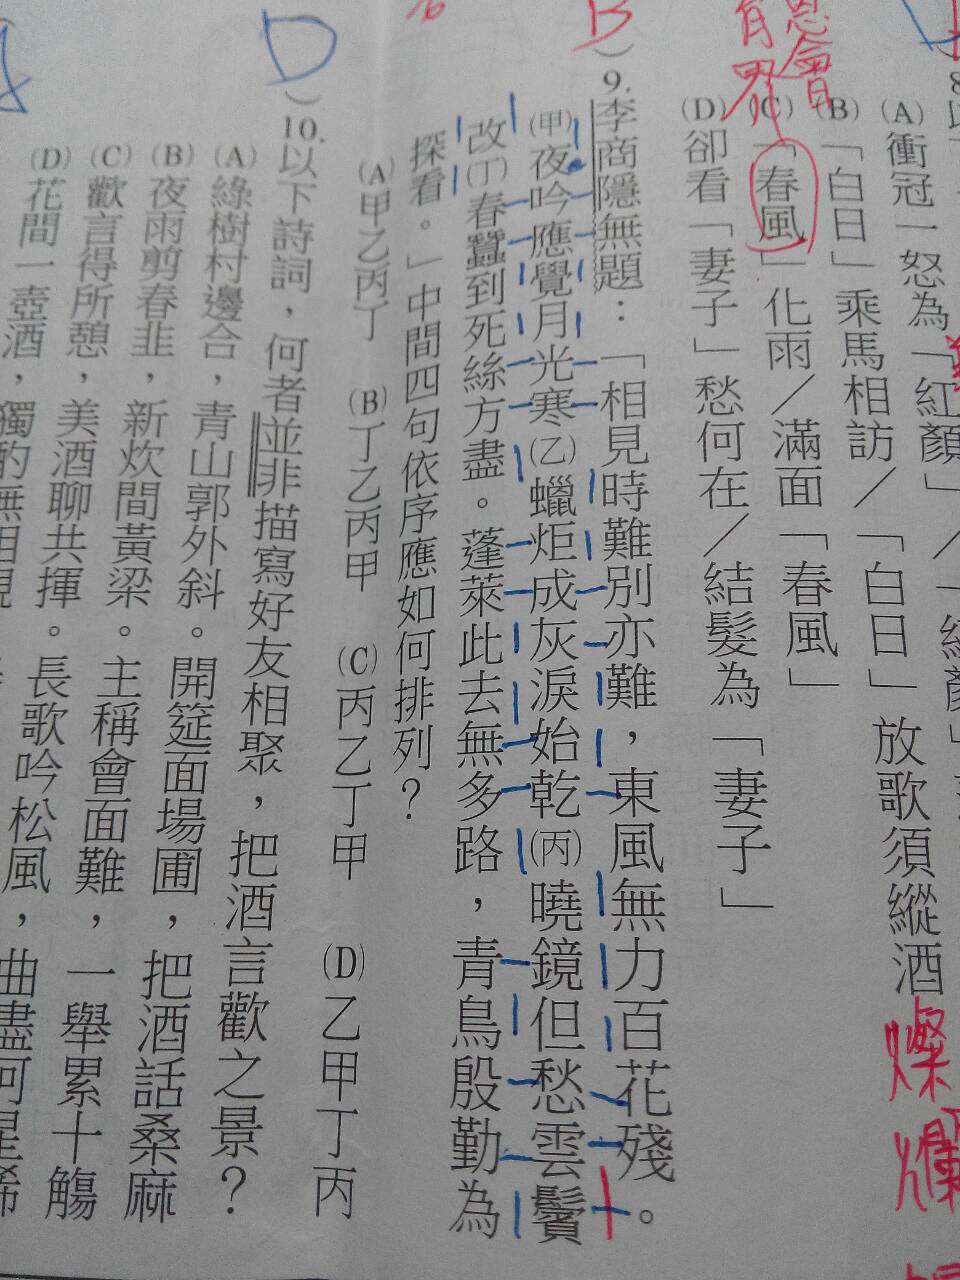 8.以
(A)衝冠一怒為「紅顏」／
(B)「白日」乘馬相訪／「白日」放歌須縱酒
(C)「春風」化雨／滿面「春風」
(D)卻看「妻子」愁何在／結髮為「妻子」
燦爛
有界
恩會
B
)9.李商隱無題：「相見時難別亦難，東風無力百花殘。
(甲)夜吟應覺月光寒(乙)蠟炬成灰淚始乾(丙)曉鏡但愁雲鬢
改(丁)春蠶到死絲方盡。蓬萊此去無多路，青鳥殷勤為
探看。」中間四句依序應如何排列？
(A)甲乙丙丁 (B)丁乙丙甲 (C)丙乙丁甲 (D)乙甲丁丙
D
)10.以下詩詞，何者並非描寫好友相聚，把酒言歡之景？
(A)綠樹村邊合，青山郭外斜。開筵面場圃，把酒話桑麻
(B)夜雨剪春韭，新炊間黃梁。主稱會面難，一舉累十觴
(C)歡言得所憩，美酒聊共揮。長歌吟松風，曲盡河星稀
(D)花間一壺酒，獨酌無相親